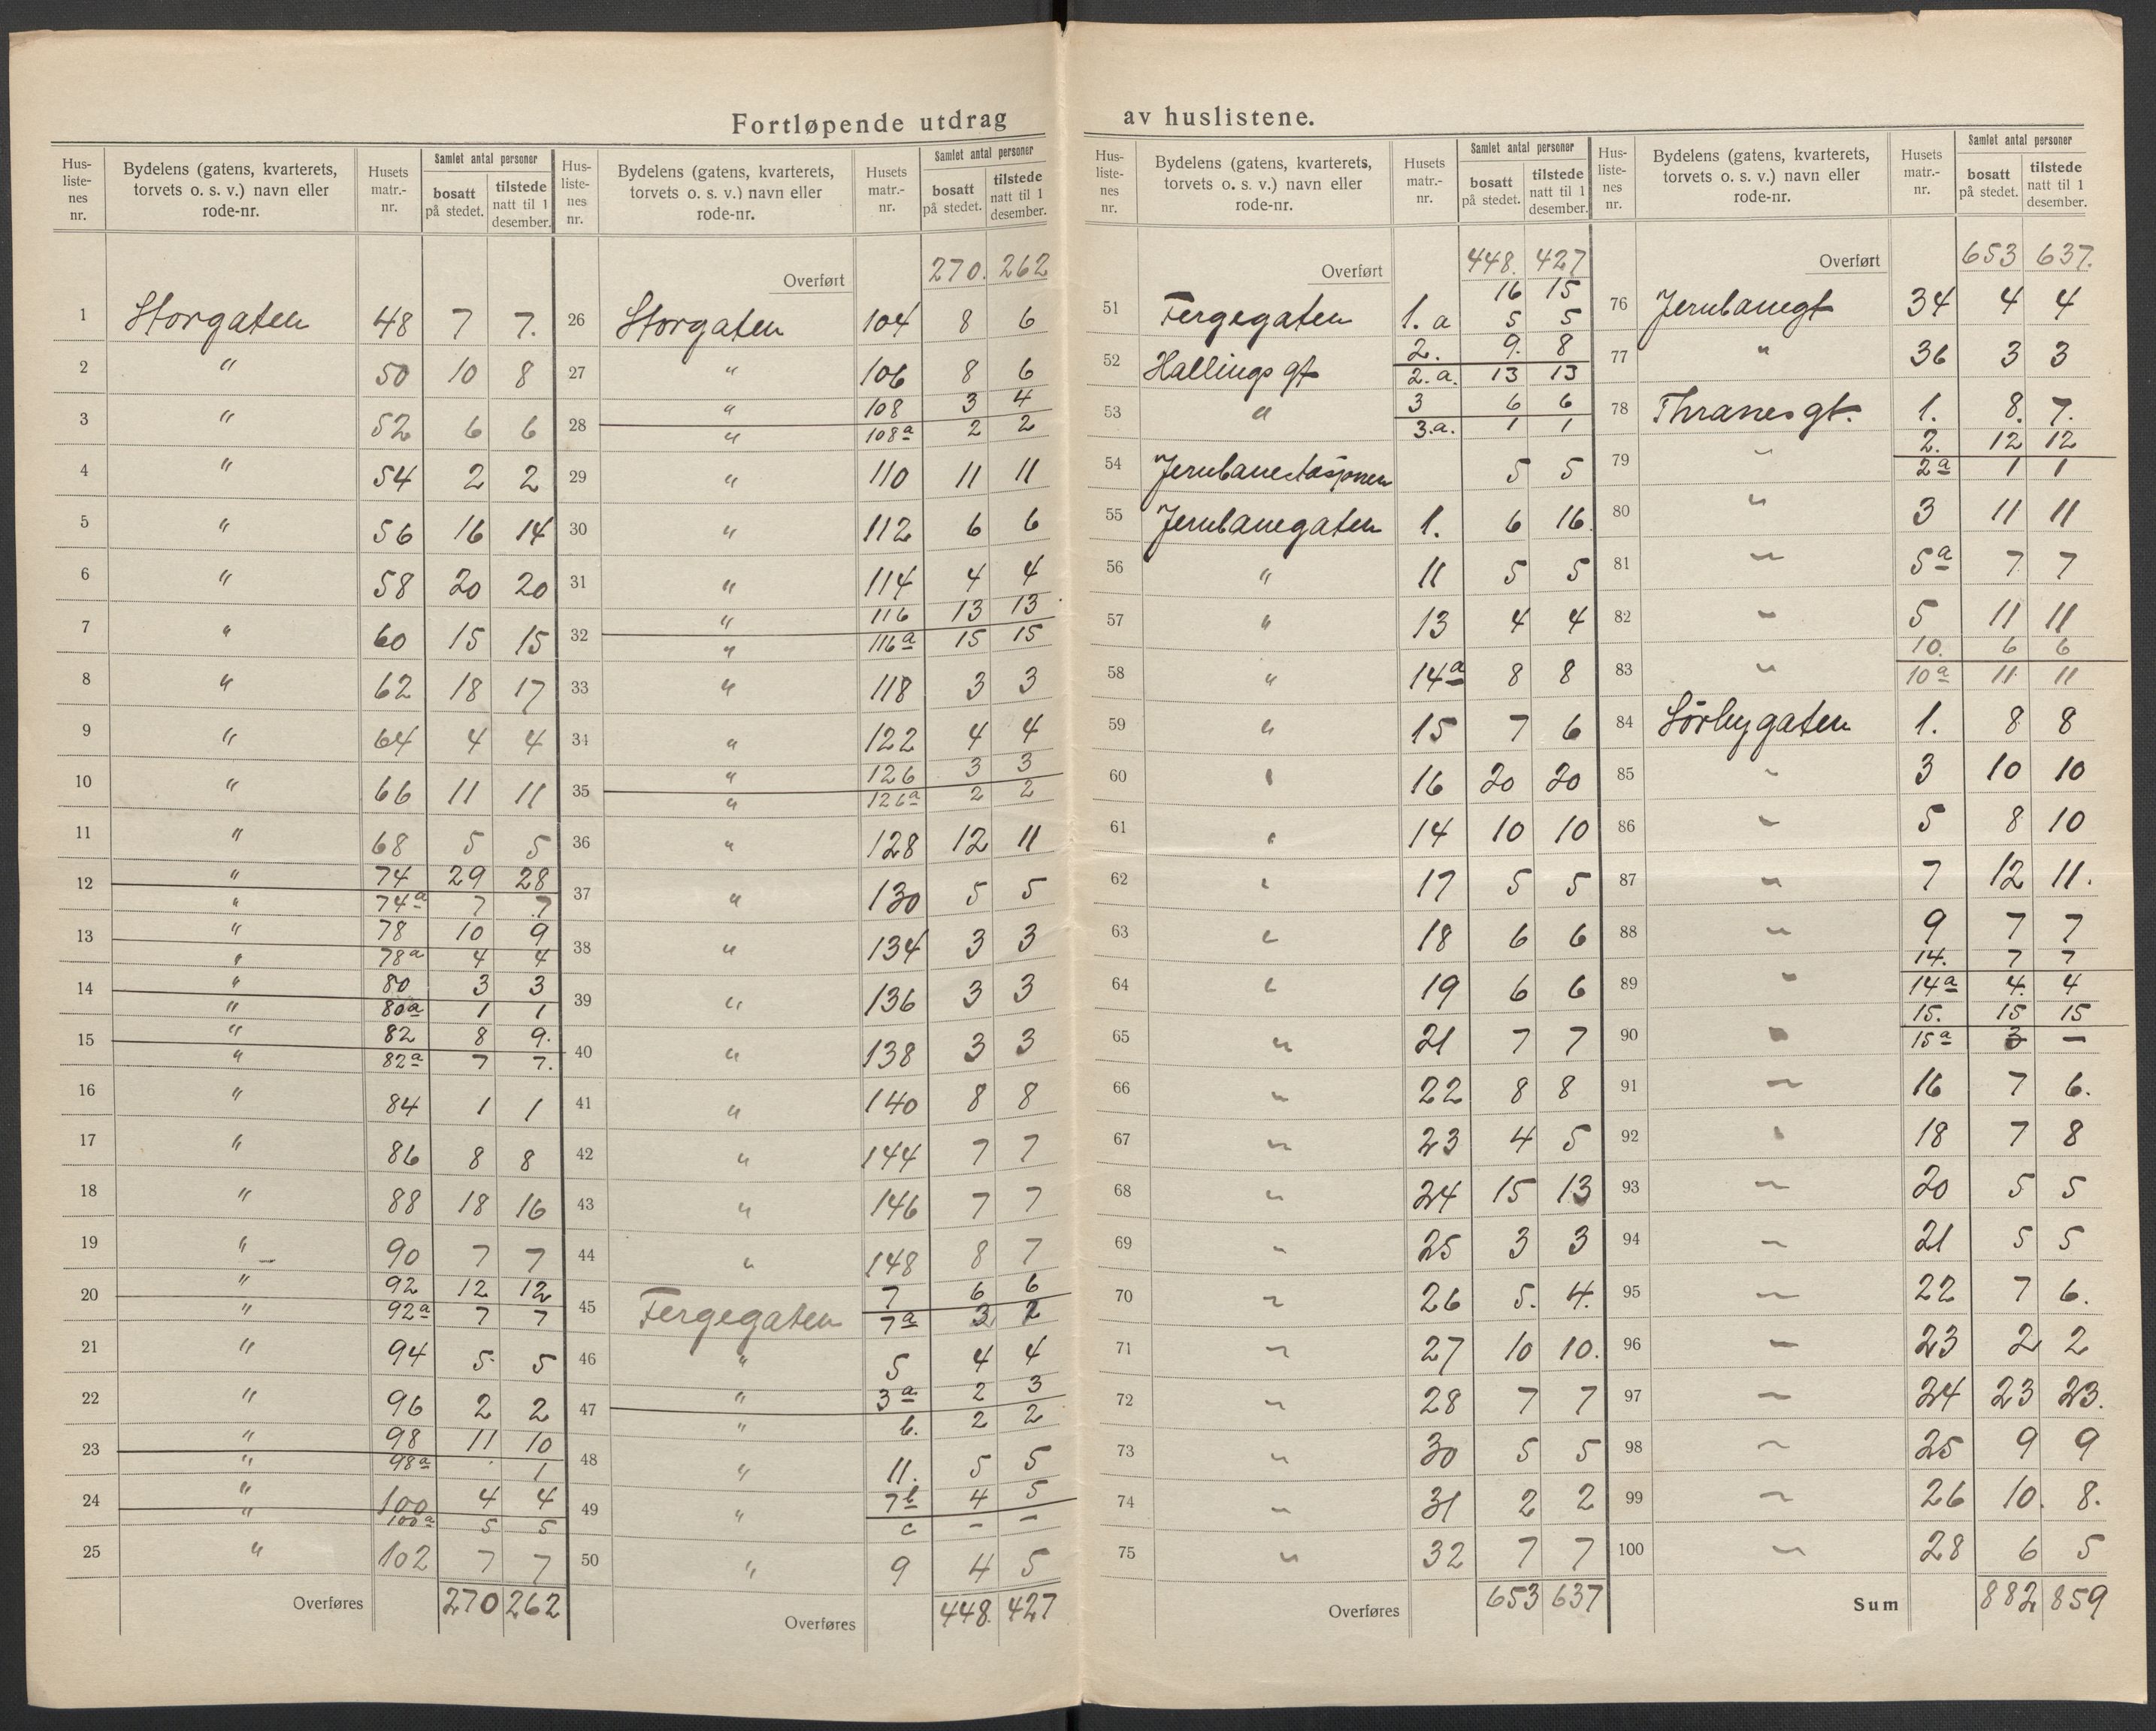 Fortløpende utdrag av huslistene.
Hus-listenes nr. | Bydelens (gatens, kvarterets, torvets o. s. v.) navn eller rode-nr. | Husets matr.-nr. | Samlet antal personer bosatt på stedet. | tilstede natt til 1 desember.
1 Storgaten 48 7 7.
2 " 50 10 8
3 " 52 6 6
4 " 54 2 2
5 " 56 16 14
6 " 58 20 20
7 " 60 15 15
8 " 62 18 17
9 " 64 4 4
10 " 66 11 11
11 " 68 5 5
12 " 74 29 28
" 74a 7 7
13 " 78 10 9
" 78a 4 4
14 " 80 3 3
" 80a 1 1
15 " 82 8 9.
" 82a 7 7.
16 " 84 1 1
17 " 86 8 8
18 " 88 18 16
19 " 90 7 7
20 " 92 12 12
" 92a 7 7
21 " 94 5 5
22 " 96 2 2
23 " 98 11 10
" 98a · 1
24 " 100 4 4
" 100a 5 5
25 " 102 7 7
Overføres 270 262
Hus-listenes nr. | Bydelens (gatens, kvarterets, torvets o. s. v.) navn eller rode-nr. | Husets matr.-nr. | Samlet antal personer bosatt på stedet. | tilstede natt til 1 desember.
Overført 270. 262
26 Storgaten 104 8 6
27 " 106 8 6
28 " 108 3 4
" 108a 2 2
29 " 110 11 11
30 " 112 6 6
31 " 114 4 4
32 " 116 13 13
" 116a 15 15
33 " 118 3 3
34 " 122 4 4
35 " 126 3 3
" 126a 2 2
36 " 128 12 11
37 " 130 5 5
38 " 134 3 3
39 " 136 3 3
40 " 138 3 3
41 " 140 8 8
42 " 144 7 7
43 " 146 7 7
44 " 148 8 7
45 Fergegaten 7 6 6
7a 3 2
46 " 5 4 4
47 " 3a 2 3
" b. 2 2
48 " 11. 5 5
49 " 7b 4 5
c – –
50 " 9 4 5
Overføres 448. 427
Hus-listenes nr. | Bydelens (gatens, kvarterets, torvets o. s. v.) navn eller rode-nr. | Husets matr.-nr. | Samlet antal personer bosatt på stedet. | tilstede natt til 1 desember.
Overført 448. 427
16 15
51 Fergegaten 1. a 5 5
52 Hallings gt 2. 9. 8
2. a. 13 13
53 " 3 6 6
3.a. 1 1
54 Jernbanestasjonen 5 5
55 Jernbanegaten 1. 6 16.
56 " 11 5 5
57 " 13 4 4
58 " 14a 8 8
59 " 15 7 6
60 " 16 20 20
61 " 14 10 10
62 " 17 5 5
63 " 18 6 6
64 " 19 6 6
65 " 21 7 7
66 " 22 8 8
67 " 23 4 5
68 " 24 15 13
69 " 25 3 3
70 " 26 5. 4.
71 " 27 10 10.
72 " 28 7 7
73 " 30 5 5
74 " 31 2 2
75 " 32 7 7
Overføres 653 637
Hus-listenes nr. | Bydelens (gatens, kvarterets, torvets o. s. v.) navn eller rode-nr. | Husets matr.-nr. | Samlet antal personer bosatt på stedet. | tilstede natt til 1 desember.
Overført 653 637.
76 Jernbanegt 34 4 4
77 " 36 3 3
78 Thranes gt. 1. 8. 7.
79 " 2. 12 12
2a 1 1
80 " 3 11 11
81 " 5a 7 7
82 " 5 11 11
83 " 10. 6 6
10a 11 11
84 Sörbygaten 1. 8 8
85 " 3 10 10
86 " 5 8 10
87 " 7 12 11.
88 " 9 7 7
89 " 14. 7 7
14a 4. 4
90 " 15. 15 15
15a 3 –
91 " 16 7 6.
92 " 18 7 8
93 " 20 5 5
94 " 21 5 5
95 " 22 7 6.
96 " 23 2 2
97 " 24 23 23.
98 " 25 9 9
99 " 26 10. 8.
100 " 28 6 5
Sum 882 859